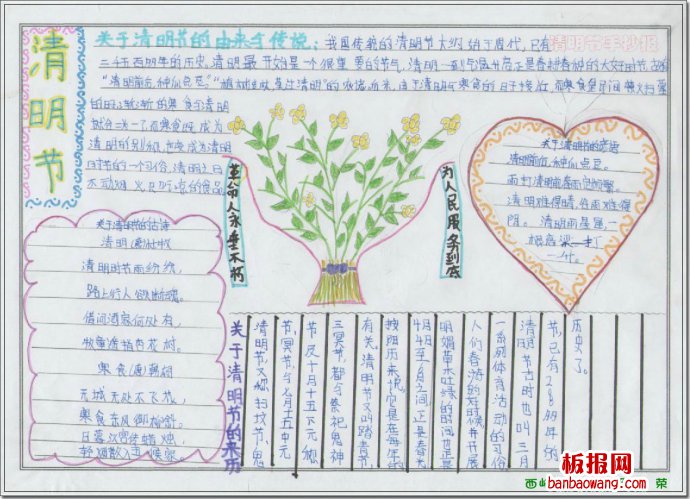 清明节
关于清明节的由来与传说:
我国传统的清明节大约始于周代,已有
清明节手抄报
二千五百
清明最开始是一个很重要的节气,清明一到气温升高正是春耕春种的大好时节
"清明前后,种瓜点豆。"
就合二为一了,而寒食既成为
清明的别称,也变成为清明
时节的一个习俗,清明之日
不动烟火,只吃凉的食品
革命人永垂不朽
为人民服务到底
关于清明节的古诗
清明(唐)杜牧
清明时节雨纷纷,
路上行人欲断魂。
借问酒家何处有,
牧童遥指杏花村。
寒食(唐)韩翃
春城无处不飞花,
寒食东风御柳斜。
日暮汉宫传蜡烛,
轻烟散入五侯家。
清明前后,种瓜点豆。
清明难得晴,谷雨难得
阴。清明雨星星,一
棵高粱打
一升。
关于清明节的来历
清明节,又称扫坟节、鬼
节、冥节,与七月十五中元
节及十月十五下元节
三冥节,都与祭祀鬼神
有关。清明节又叫踏青节,
按阳历来说,它是在每年的
4月4日至6日之间,正是春光
明媚草木吐绿的时节,也正是
人们春游的好时候,并开展
一系列体育活动的习俗
清明节古时也叫三月
节,已有2000多年的
历史了。
板报网
banbaowang.com
西山
荣